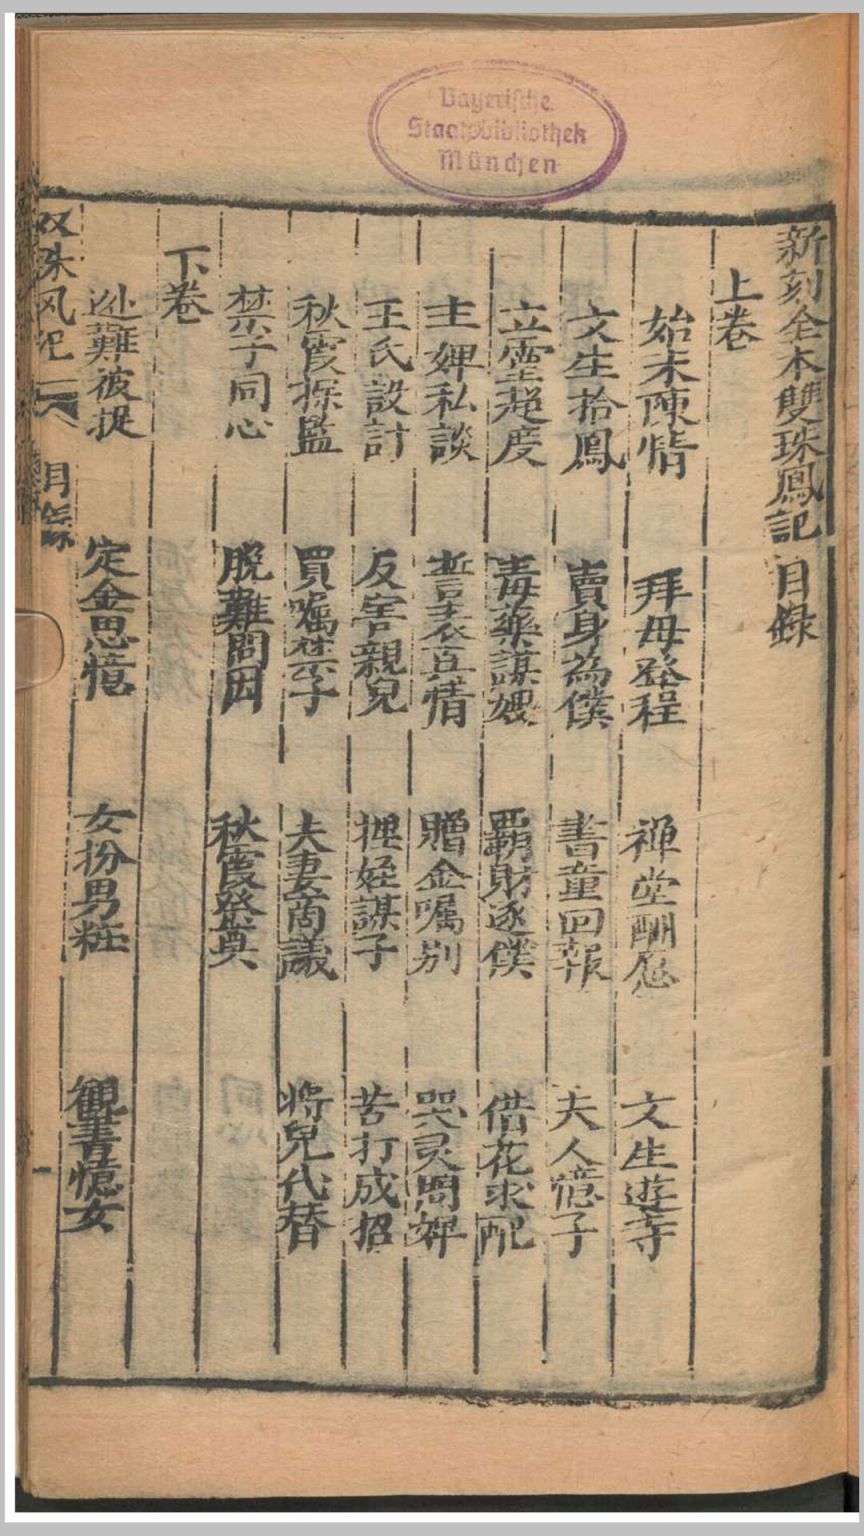 Bayerische
Staatsbibliothek
München
新刻全本雙珠鳳記 目錄
上卷
始末陳情 拜母登程 禅堂酬愿 文生遊寺
文生拾鳳 賣身為僕 書童回報 夫人憶子
立靈超度 毒藥謀嫂 覇財逐僕 借花求配
主婢私談 訔表真情 贈金嘱别 哭灵問婢
王氏設計 反害親兒 押姪謀子 苦打成招
秋霞探監 買嘱禁子 夫妻商議 將兒代替
禁子同心 脫難問因 秋霞祭奠
下卷
逊難被捉 定金思憶 女扮男粧 觀書憶女
双珠凤记 目錄